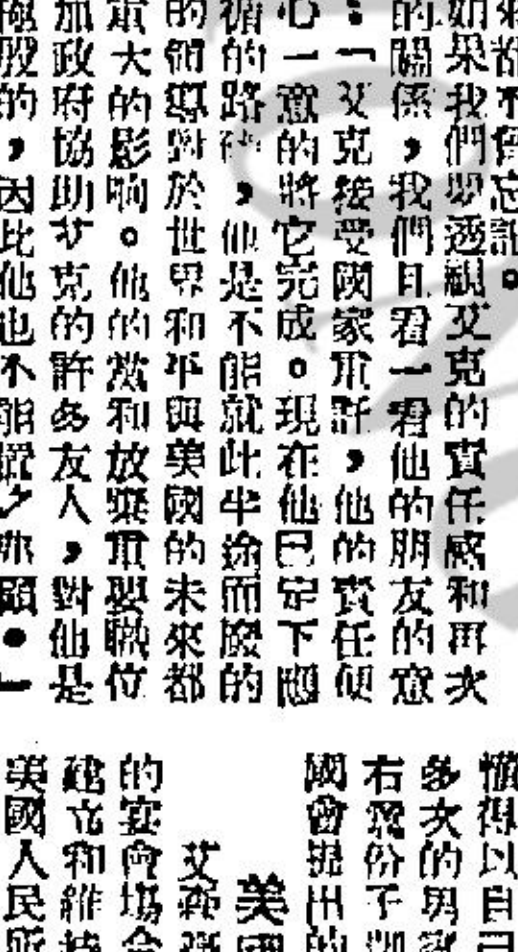 都不會忘記。
如果我們要透視艾克的責任感和再次
的關係,我們且看一看他的朋友的意
:「艾克接受國家重託,他的責任便
心一意的將它完成。現在他已定下應
循的路,他是不能就此半途而廢的
的領導對於世界和平與美國未來都
重大的影响。他的黨和放棄重要職位
加政府協助艾克的許多友人,對他是
的,因此他也不能顧。」
得以自己
多次的
右翼份子
國會提出的
美國
艾森
的宴會場合
建立和維持
美國人民所